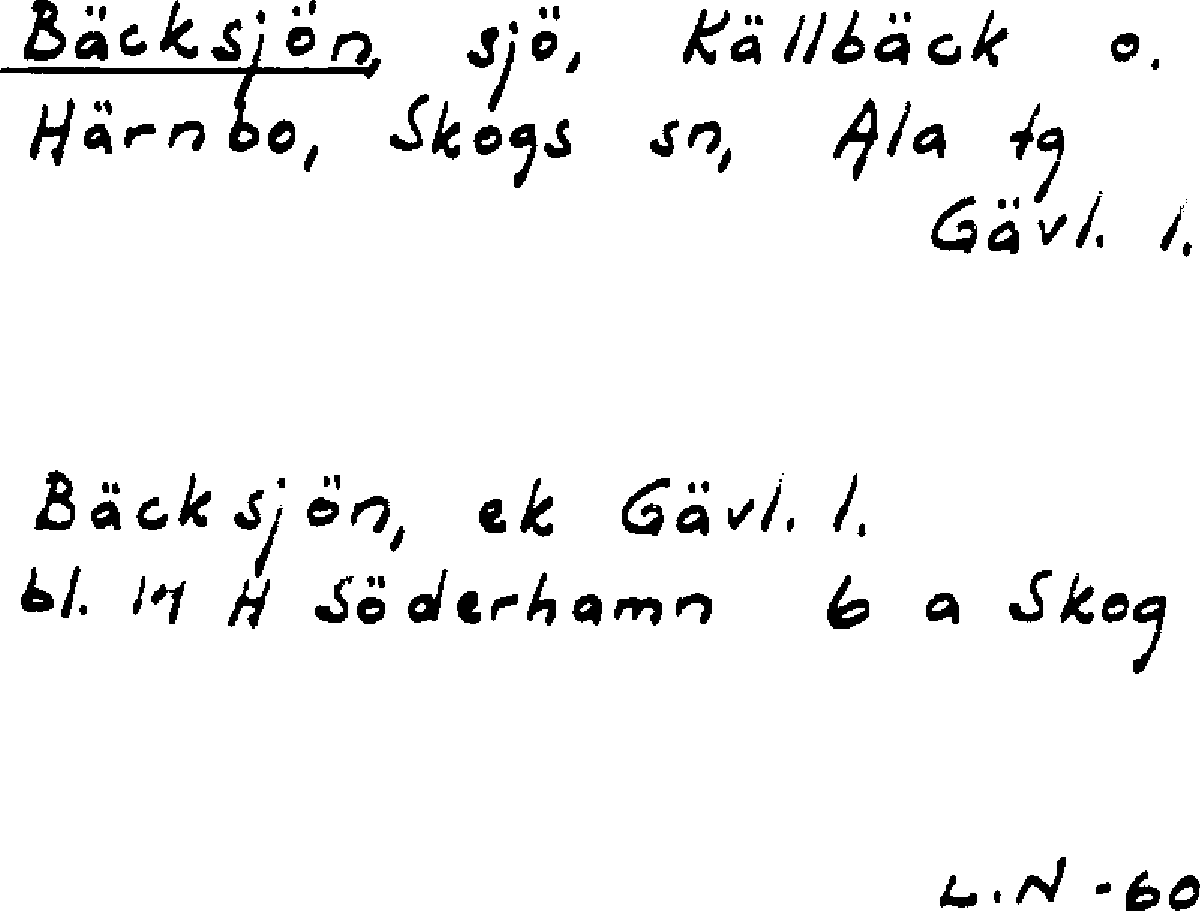 Bäcksjön, sjö, Källbäck o.
Härnbo, Skogs sn, Ala tg
Gävl. l.
Bäcksjön, ek Gävl. l.
bl. 14 H Söderhamn 6 a Skog
L.N -60